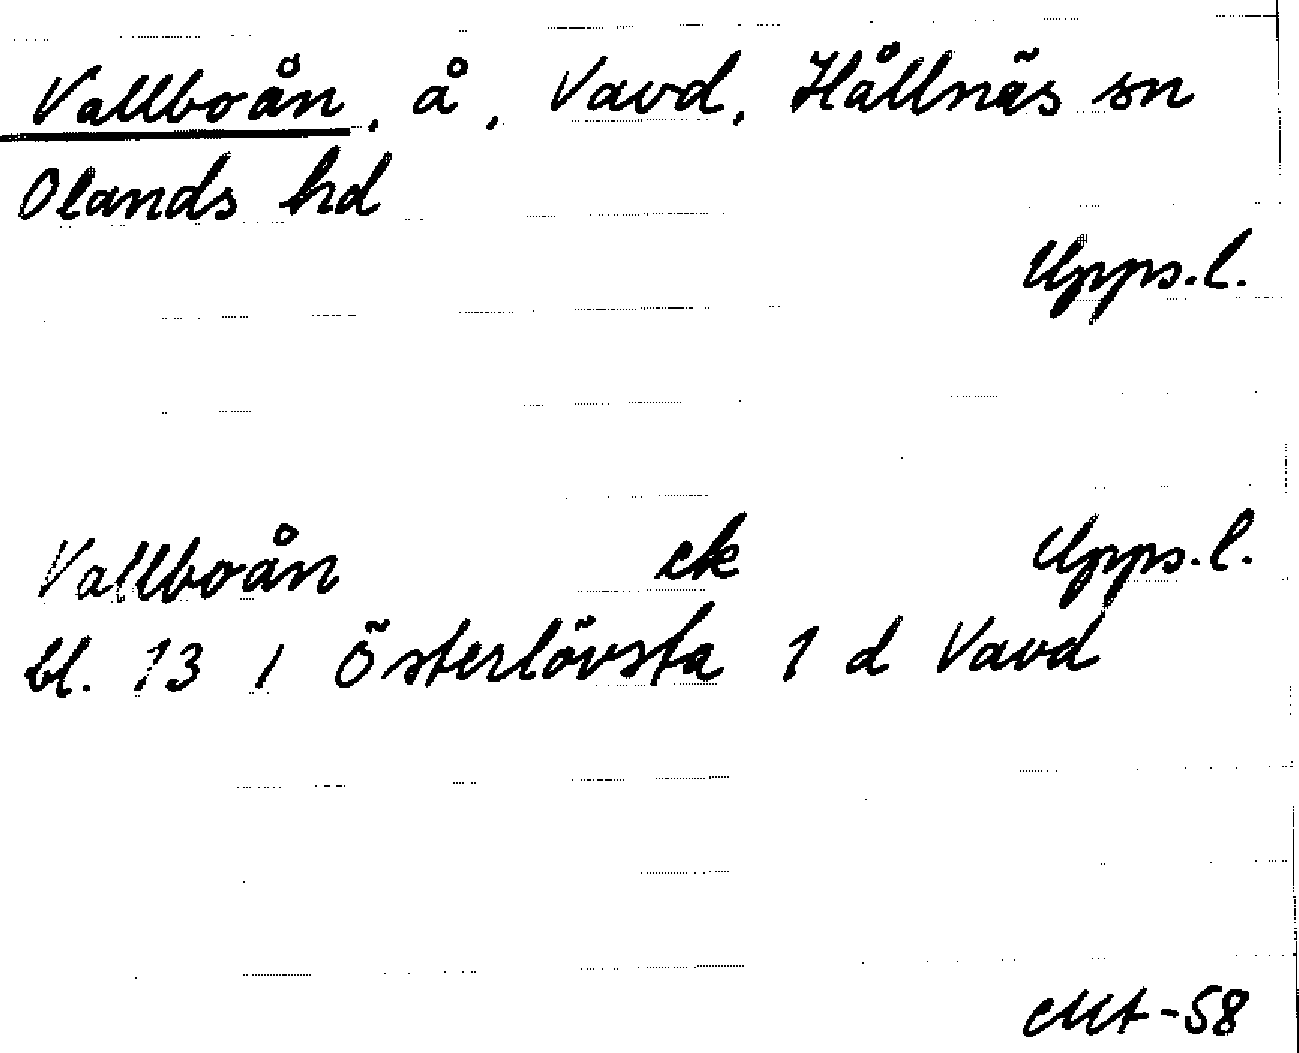 Vallboån, å, Vavd, Hållnäs sn
Olands hd
Upps.l.
Vallboån ek Upps.l.
bl. 13 I Österlövsta 1 d Vavd
MA-58